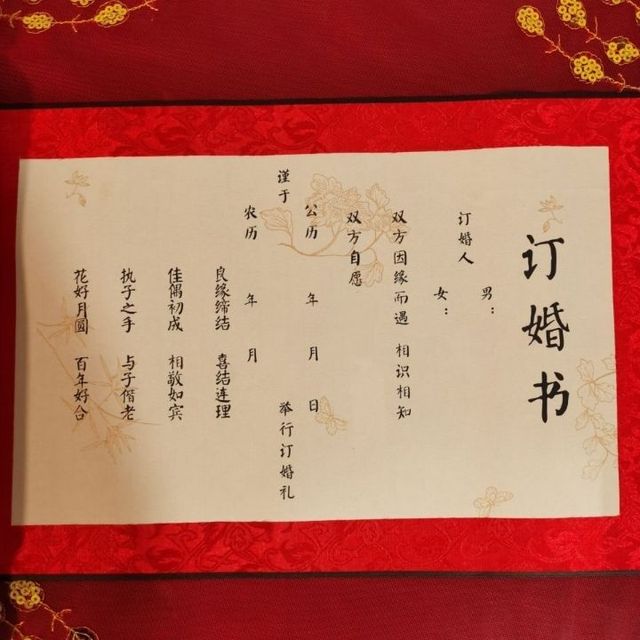 订婚书
男：
订婚人
女：
双方因缘而遇 相识相知
双方自愿
公历 年 月 日
谨于 举行订婚礼
农历 年 月
良缘缔结 喜结连理
佳偶初成 相敬如宾
执子之手 与子偕老
花好月圆 百年好合